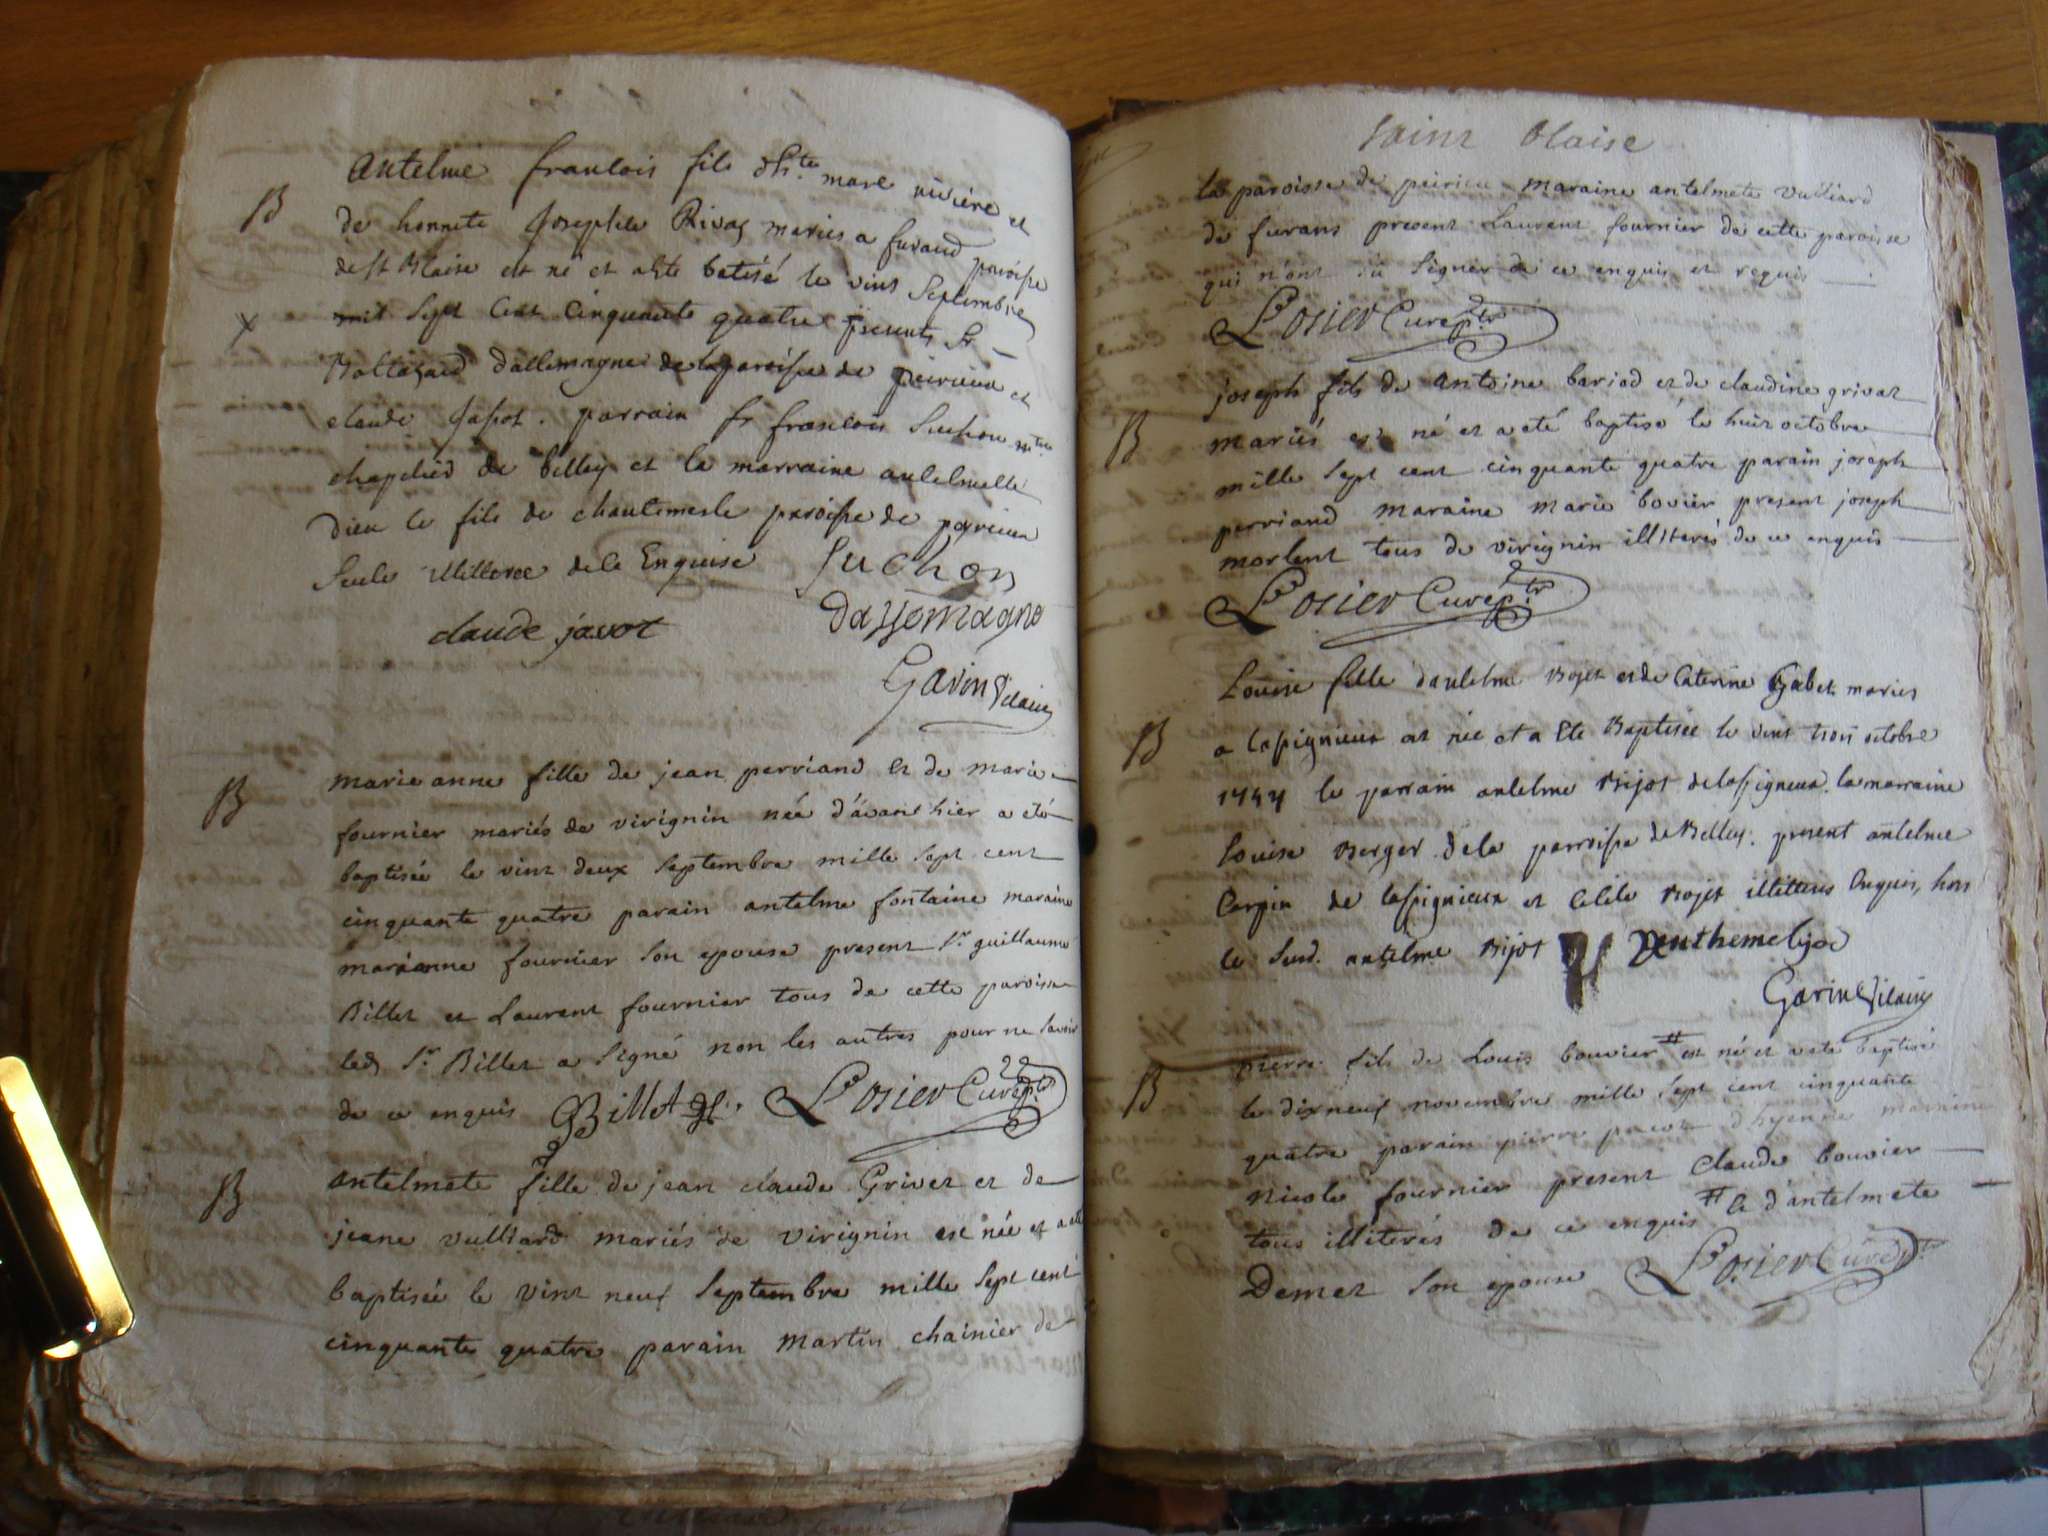 B
Antelme francois fils d'h.te marc rivière et
de honnete Josephte Rivas mariés a furand paroisse
de st Blaise est né et a Ete batisé le vint Septembre
x
mil sept Cent Cinquante quatre presents Sr
Baltazard dallemagne de la paroisse de peirieux et
claude javot. parrain sr francois Suchon
de belley et la marraine antelmette
dieu le fils de chantemesle paroisse de peyrieu
Seule illiteree de ce Enquise Suchon
claude javot dallemagne
Garin vicaire
B
marie anne fille de jean perriand et de marie
fournier mariés de virignin née d'avant hier a eté
baptisée le vint deux septembre mille sept cent
cinquante quatre parain antelme fontaine maraine
marianne fournier son epouse present Sr guillaume
Billet et Laurent fournier tous de cette paroisse
led Sr Billet a signé non les autres pour ne savoir
de ce enquis Billet Losier Curé
B
antelmete fille de jean claude Grivet et de
jeane vulliard mariés de virignin est née et a eté
baptisée le vint neuf septembre mille sept cent
cinquante quatre parain martin chainier de
saint Blaise
la paroisse de peirieu maraine antelmete vulliard
de furans present Laurent fournier de cette paroisse
qui n'ont sû signer de ce enquis et requis
Losier Curé
B
joseph fils de antoine bariod et de claudine grivat
mariés est né et a eté baptisé le huit octobre
mille sept cent cinquante quatre parain joseph
perriand maraine marie bovier present joseph
morlent tous de virignin illiterés de ce enquis
Losier Curé
B
Louise fille dantelme Bojet et de Caterine Gubet mariés
a lassignieux est née et a Ete Baptisée le vint trois octobre
1754 le parrain antelme Bijot de lassignieux. la marraine
louise Berger de la parroisse de Belley. present antelme
Carpin de lassignieux et Bojet illitterés Enquis, hors
le susd. antelme Bijot
Garin vicaire
B
pierre fils de Louis bouvier # est né et a eté baptisé
le dixneuf novembre mille sept cent cinquante
quatre parain pierre d'hyenne maraine
nicole fournier present Claude bouvier
tous illiterés de ce enquis # & d'antelmete
Demet son epouse Losier Curé